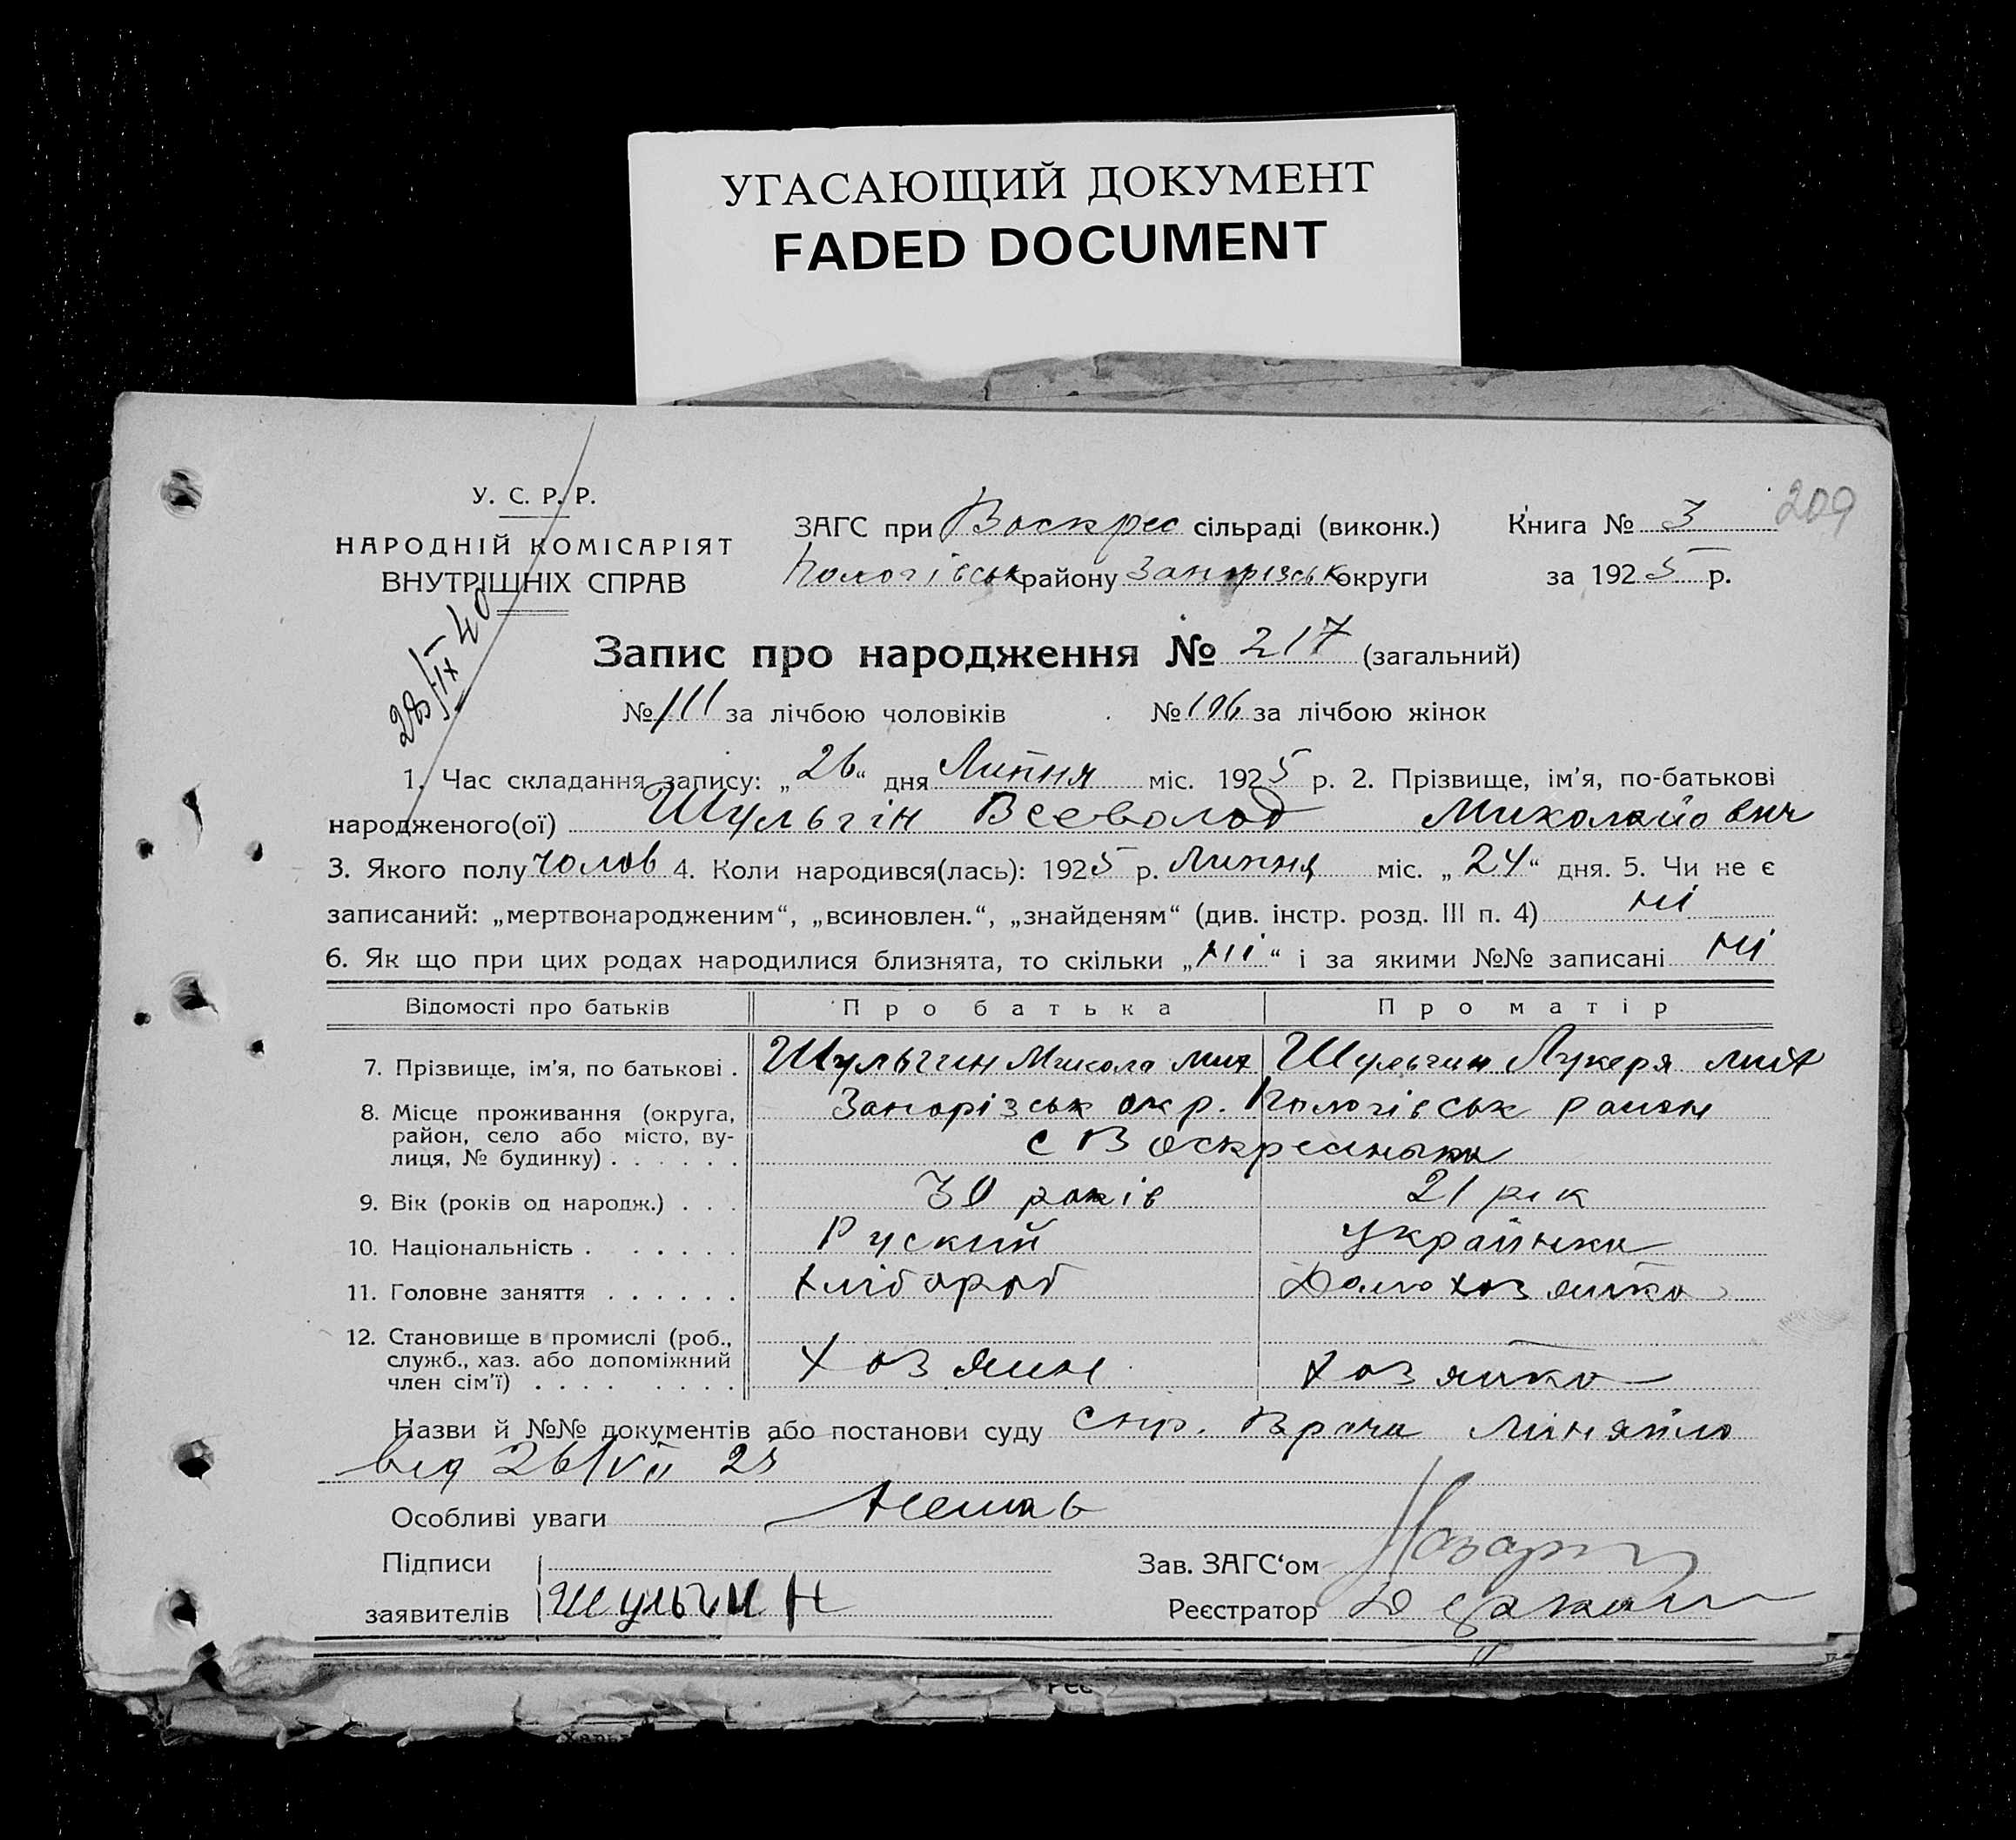 УГАСАЮЩИЙ ДОКУМЕНТ
FADED DOCUMENT
209
У. С. Р. Р.
НАРОДНІЙ КОМІСАРІЯТ
ВНУТРІШНІХ СПРАВ
28/IX 40
ЗАГС при Воскрес сільраді (виконк.)
Пологівськ району Запорізськ округи
Книга № 3
за 1925 р.
Запис про народження № 217 (загальний)
№ 111 за лічбою чоловіків № 106 за лічбою жінок
1. Час складання запису: „26“ дня Липня міс. 1925 р. 2. Прізвище, ім’я, по-батькові
народженого(ої) Шульгін Всеволод Миколайович
3. Якого полу чолов 4. Коли народився(лась): 1925 р. Липня міс. „24“ дня. 5. Чи не є
записаний: „мертвонародженим“, „всиновлен.“, „знайденям“ (див. інстр. розд. III п. 4) ні
6. Як що при цих родах народилися близнята, то скільки „ні“ і за якими №№ записані ні
Відомості про батьків Про батька Про матір
7. Прізвище, ім’я, по батькові . Шульгин Микола Мих Шульгин Лукеря Мих
8. Місце проживання (округа, район, село або місто, ву-лиця, № будинку) . . . . . . Запорізськ окр. Пологівськ район
с Воскресинька
9. Вік (років од народж.) . . . 30 років 21 рік
10. Національність . . . . . . Руский Українка
11. Головне заняття . . . . . . Хлібороб Домохозяйка
12. Становище в промислі (роб., служб., хаз. або допоміжний член сім’ї) . . . . . . . . Хозяин хозяйка
Назви й №№ документів або постанови суду спр. Врача
від 26/VII 25
Особливі уваги Немає
Підписи
заявителів Шульгин
Зав. ЗАГС‘ом
Реєстратор